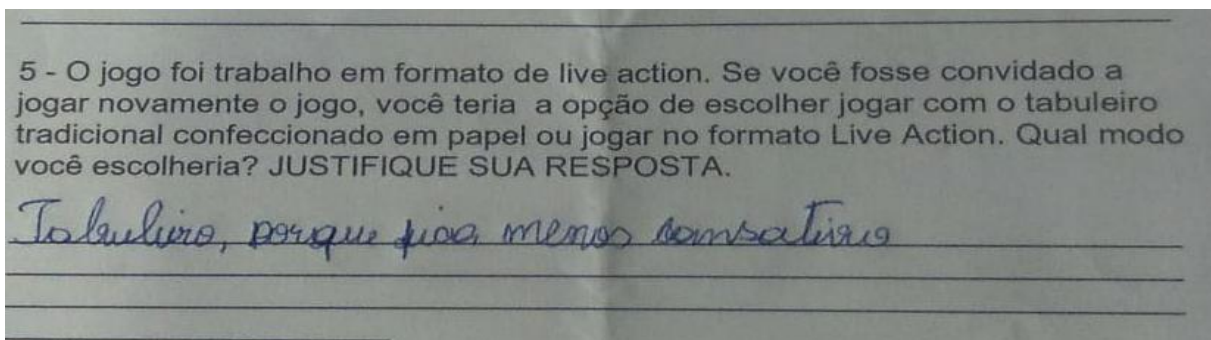 5 - O jogo foi trabalho em formato de live action. Se você fosse convidado a
jogar novamente o jogo, você teria a opção de escolher jogar com o tabuleiro
tradicional confeccionado em papel ou jogar no formato Live Action. Qual modo
você escolheria? JUSTIFIQUE SUA RESPOSTA.
Tabuleiro, porque fica menos cansativo